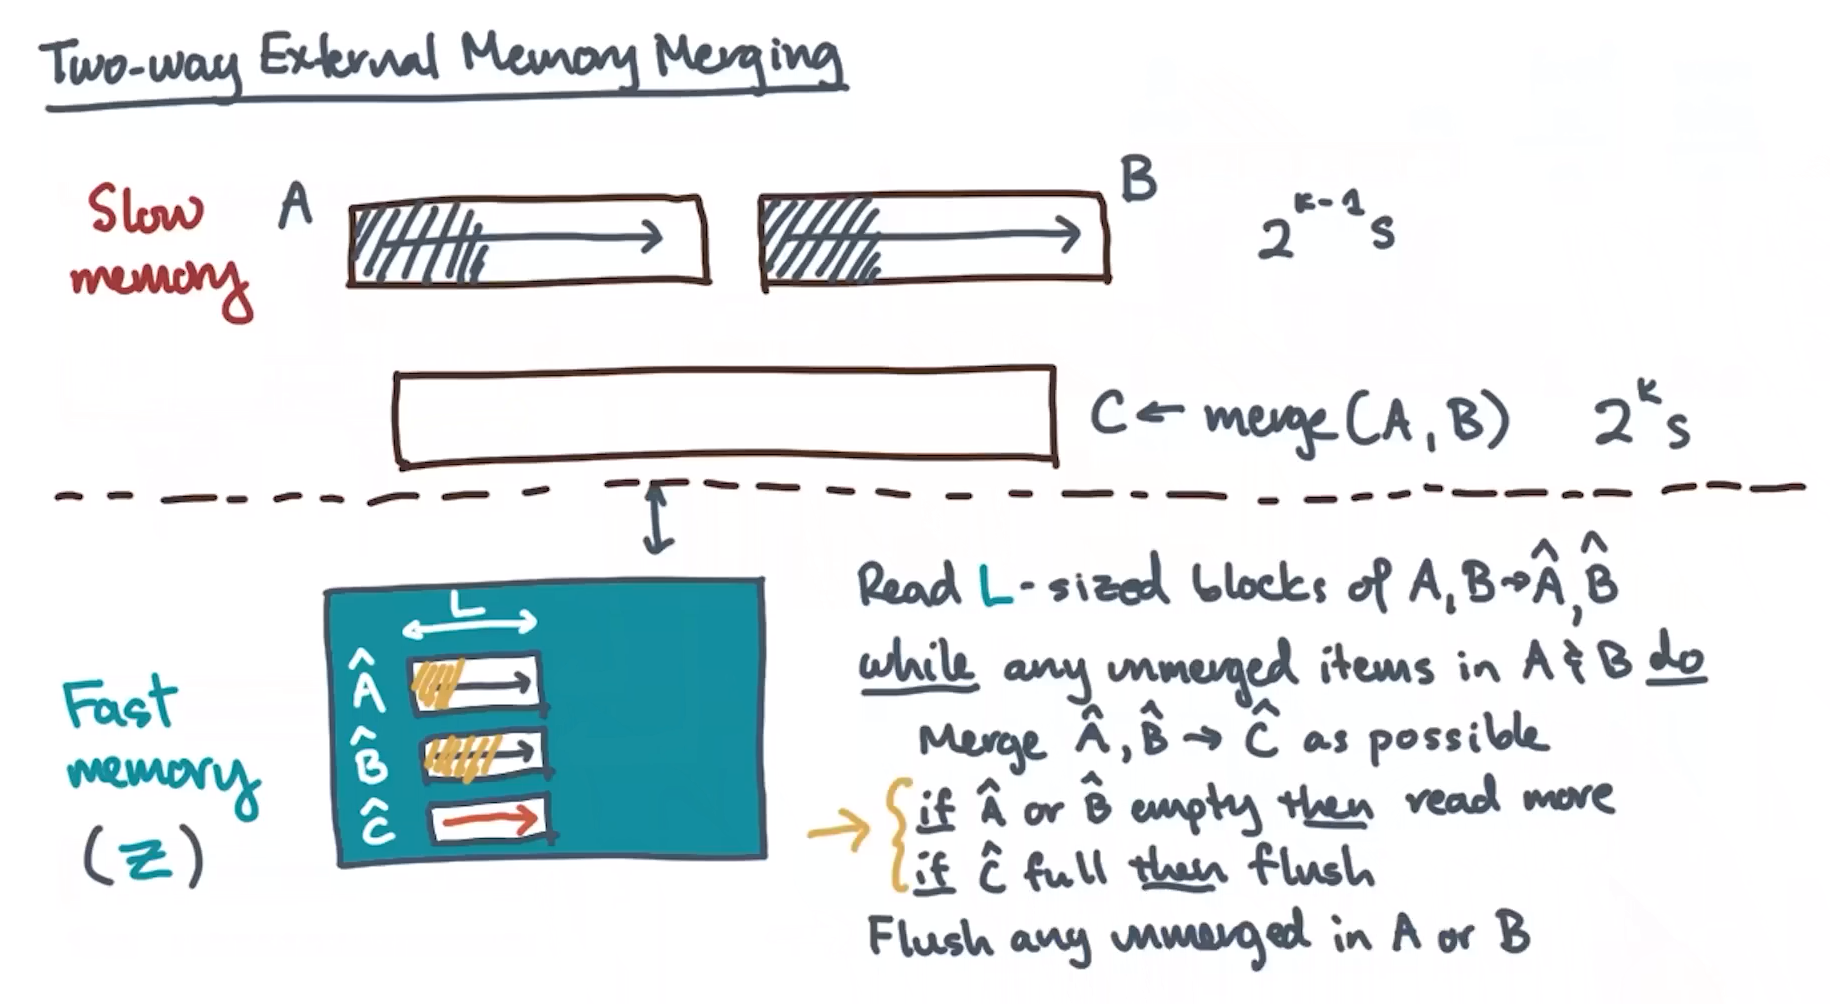 Two-way External Memory Merging
Slow
memory
A
B
2^{k-1}s
C ← merge(A, B)
2^k s
Fast
memory
(Z)
L
Â
B̂
Ĉ
Read L-sized blocks of A, B → Â, B̂
while any unmerged items in A & B do
Merge Â, B̂ → Ĉ as possible
if  or B̂ empty then read more
if Ĉ full then flush
Flush any unmerged in A or B